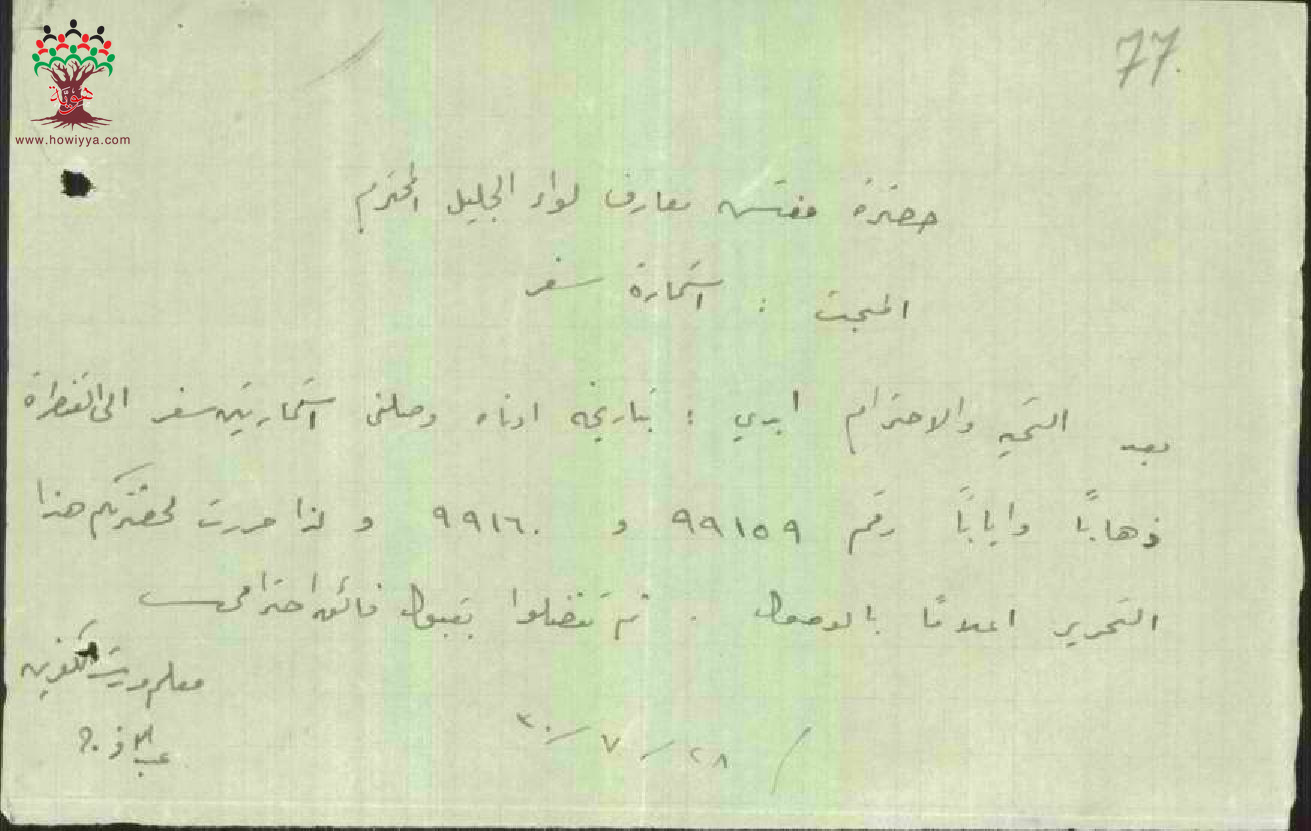 77.
هوية
www.howiyya.com
حضرة مفتش معارف لواء الجليل المحترم
المبحث : استمارة سفر
بعد التحية والاحترام ابدي : بتاريخه ادناه وصلني استمارتين سفر الى القنطرة
ذهاباً واياباً رقم ٩٩١٥٩ و ٩٩١٦٠ و لذا حررت لحضرتكم هذا
التحرير اعلاماً بالوصول . ثم تفضلوا بقبول فائق احترامي
معلم
٢٨ / ٧ / ٣٠